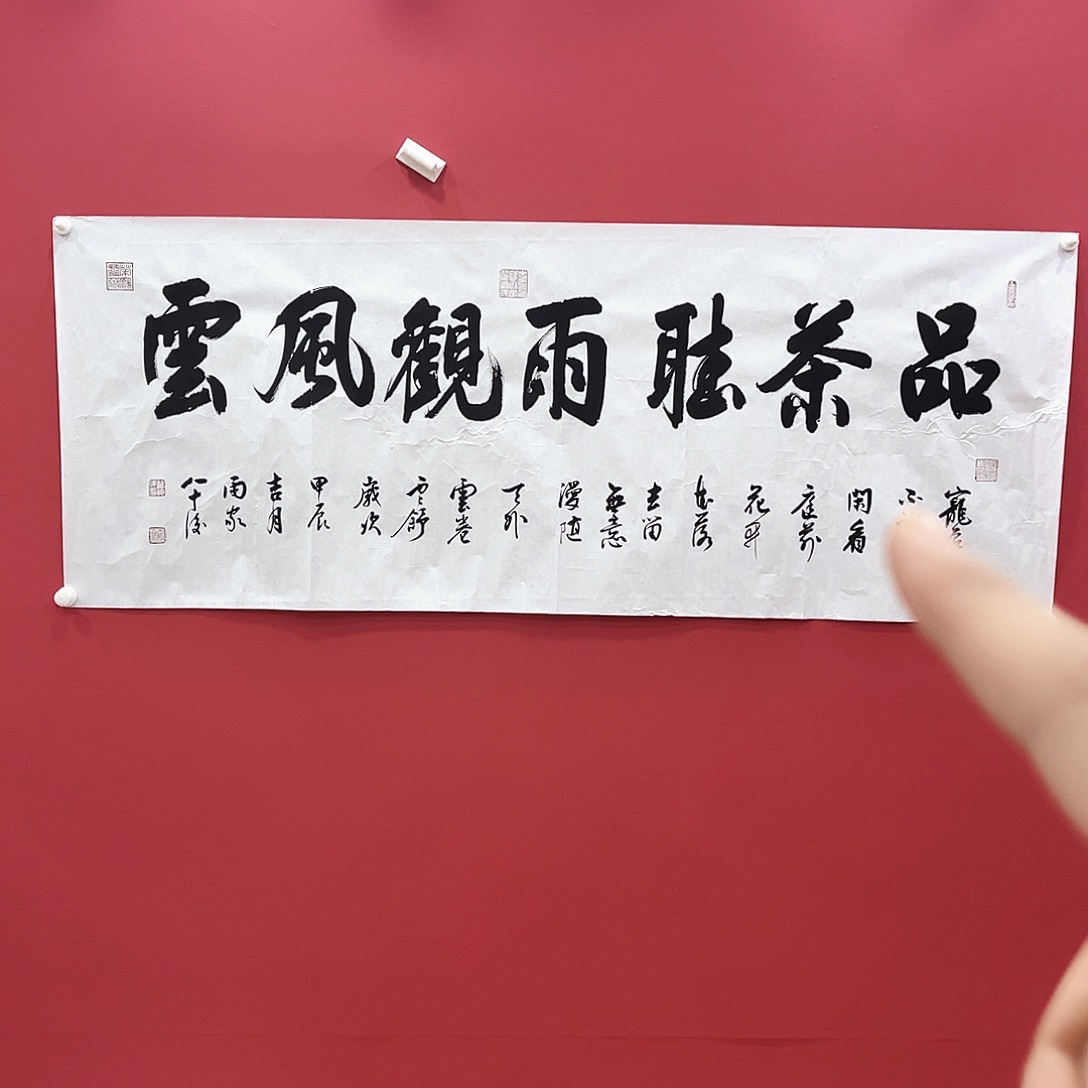 品茶聽雨觀風雲
寵
不
閑看
庭前
花開
花落
去留
無意
漫随
天外
雲卷
雲舒
歲次
甲辰
吉月
雨家